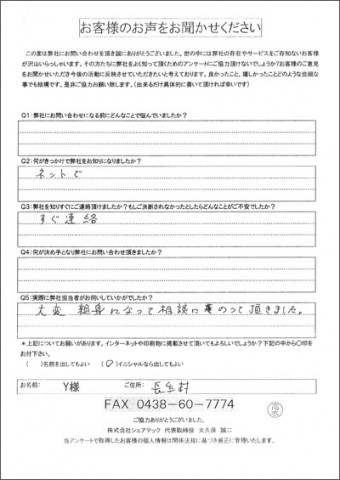 お客様のお声をお聞かせください
この度は弊社にお問い合わせを頂き誠にありがとうございました。世の中には弊社の存在やサービスをご存知ないお客様
が沢山いらっしゃいます。その方たちに弊社をよく知って頂くためのアンケートにご協力頂けないでしょうか?お客様のご意見
をお聞かせいただき今後の活動に反映させていただきたいと考えております。良かったこと、嬉しかったことどのような些細な
事でも結構です。是非ご協力お願い致します。(出来るだけ具体的に書いて頂ければ幸いです)
Q1:弊社にお問い合わせになる前にどんなことで悩んでいましたか?
Q2:何がきっかけで弊社をお知りになりましたか?
ネットで
Q3:弊社を知りすぐにご連絡頂けますか?もしご決断されなかったとしたらどんなことがご不安でしたか?
すぐ連絡
Q4:何が決め手となり弊社にお問い合わせ頂きましたか?
Q5:実際に弊社担当者がお伺いしていかがでしたか?
大変 親身になって相談に のって頂きました。
*上記についてお願いがあります。インターネットや印刷物に掲載させて頂いてもよろしいでしょうか?下記の中から〇印を
お付け下さい。
( )名前を出してもよい (〇)イニシャルなら出してもよい
お名前: Y様 ご住所: 長生村
FAX 0438-60-7774
ご協力ありがとうございました。
株式会社シェアテック 代表取締役 大久保 誠二
当アンケートで取得したお客様の個人情報は関係法規に基づき厳正に管理いたします。